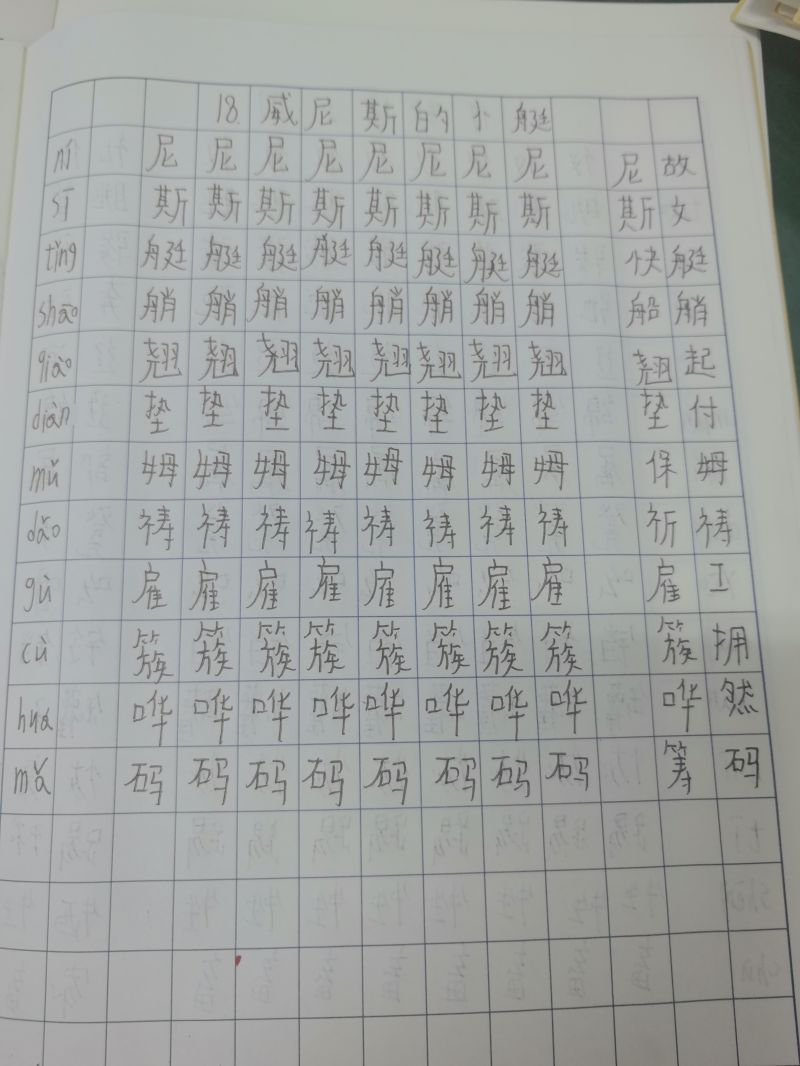 18. 威尼斯的小艇
ní 尼尼尼尼尼尼尼尼 尼故
sī 斯斯斯斯斯斯斯斯 斯文
tǐng 艇艇艇艇艇艇艇艇 快艇
shāo 艄艄艄艄艄艄艄艄 船艄
qiào 翘翘翘翘翘翘翘翘 翘起
diàn 垫垫垫垫垫垫垫垫 垫付
mǔ 姆姆姆姆姆姆姆姆 保姆
dǎo 祷祷祷祷祷祷祷祷 祈祷
gù 雇雇雇雇雇雇雇雇 雇工
cù 簇簇簇簇簇簇簇簇 簇拥
huá 哗哗哗哗哗哗哗哗 哗然
mǎ 码码码码码码码码 筹码